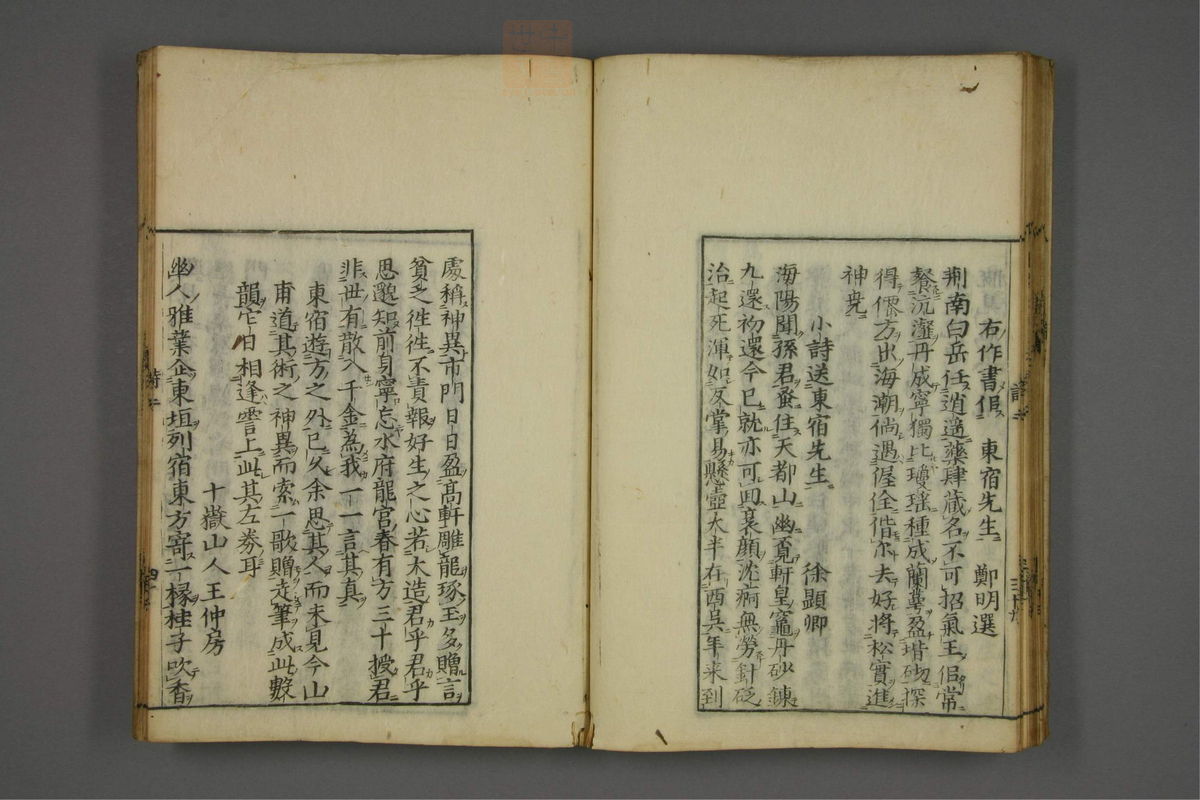 右作書佀　東宿先生　鄭明選
荆南白岳任逍遥藥肆蔵名不可招氣王佀常
餐沆瀣丹成寧獨比瓊瑶種成蘭蕚盈堦砌探
得僊方出海潮倘遇偓佺偕尓去好将松實進
神堯
小詩送東宿先生　徐顕卿
海陽聞孫君蚤住天都山幽覔軒皇竈丹砂錬
九還初還今已就亦可回衰顔沈痾無勞針砭
治起死渾如反掌易懸壷大半在西吳年来到
處稱神異市門日日盈髙軒雕龍琢玉多贈言
貧乏徃徃不責報好生之心若木造君乎君乎
思邈知前身寧忘水府龍宫春有方三十授君
非世有散入千金為我一一言其真
東宿遊方之外已久余思其人而未見今山
甫道其術之神異而索一歌贈走筆成此數
韻它日相逢霅上此其左劵耳
十嶽山人王仲房
幽人雅葉企東垣列宿東方寄一椽桂子吹香